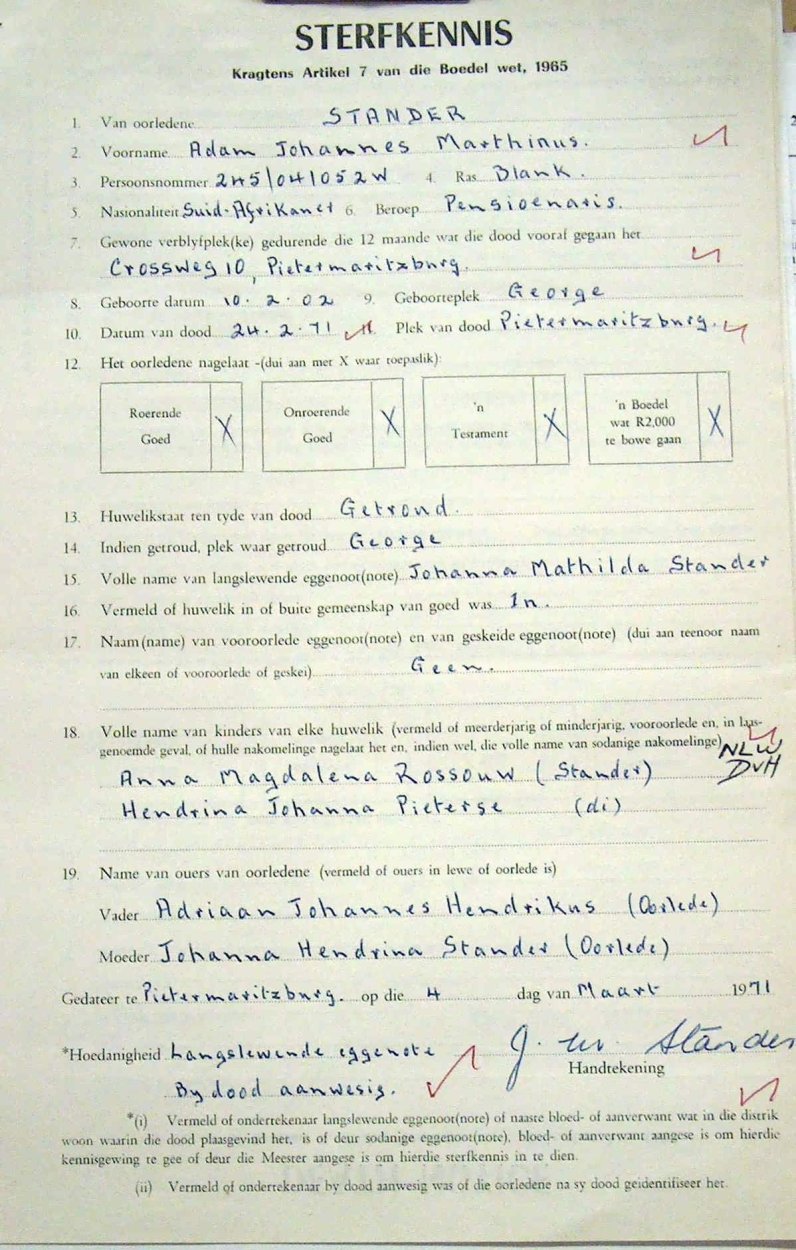 STERFKENNIS
Kragtens Artikel 7 van die Boedel wet, 1965
1. Van oorledene STANDER
2. Voorname Adam Johannes Marthinus.
3. Persoonsnommer 245/04/052W 4. Ras Blank.
5. Nasionaliteit Suid-Afrikaner 6. Beroep Pensioenaris.
7. Gewone verblyfplek(ke) gedurende die 12 maande wat die dood vooraf gegaan het
Crossweg 10, Pietermaritzburg.
8. Geboorte datum 10.2.02 9. Geboorteplek George
10. Datum van dood 24.2.71 11. Plek van dood Pietermaritzburg.
12. Het oorledene nagelaat -(dui aan met X waar toepaslik):
Roerende Goed X
Onroerende Goed X
'n Testament X
'n Boedel wat R2,000 te bowe gaan X
13. Huwelikstaat ten tyde van dood Getroud.
14. Indien getroud, plek waar getroud George
15. Volle name van langslewende eggenoot(note) Johanna Mathilda Stander
16. Vermeld of huwelik in of buite gemeenskap van goed was In.
17. Naam(name) van vooroorlede eggenoot(note) en van geskeide eggenoot(note) (dui aan teenoor naam
van elkeen of vooroorlede of geskei) Geen.
18. Volle name van kinders van elke huwelik (vermeld of meerderjarig of minderjarig, vooroorlede en, in laas-
genoemde geval, of hulle nakomelinge nagelaat het en, indien wel, die volle name van sodanige nakomelinge)
NLW
DvH
Anna Magdalena Rossouw (Stander)
Hendrina Johanna Pieterse (di)
19. Name van ouers van oorledene (vermeld of ouers in lewe of oorlede is)
Vader Adriaan Johannes Hendrikus (Oorlede)
Moeder Johanna Hendrina Stander (Oorlede)
Gedateer te Pietermaritzburg. op die 4 dag van Maart 1971
*Hoedanigheid Langslewende eggenote J. M. Stander
Handtekening
By dood aanwesig.
*(i) Vermeld of ondertekenaar langslewende eggenoot(note) of naaste bloed- of aanverwant wat in die distrik
woon waarin die dood plaasgevind het, is of deur sodanige eggenoot(note), bloed- of aanverwant aangese is om hierdie
kennisgewing te gee of deur die Meester aangese is om hierdie sterfkennis in te dien.
(ii) Vermeld of ondertekenaar by dood aanwesig was of die oorledene na sy dood geidentifiseer het.